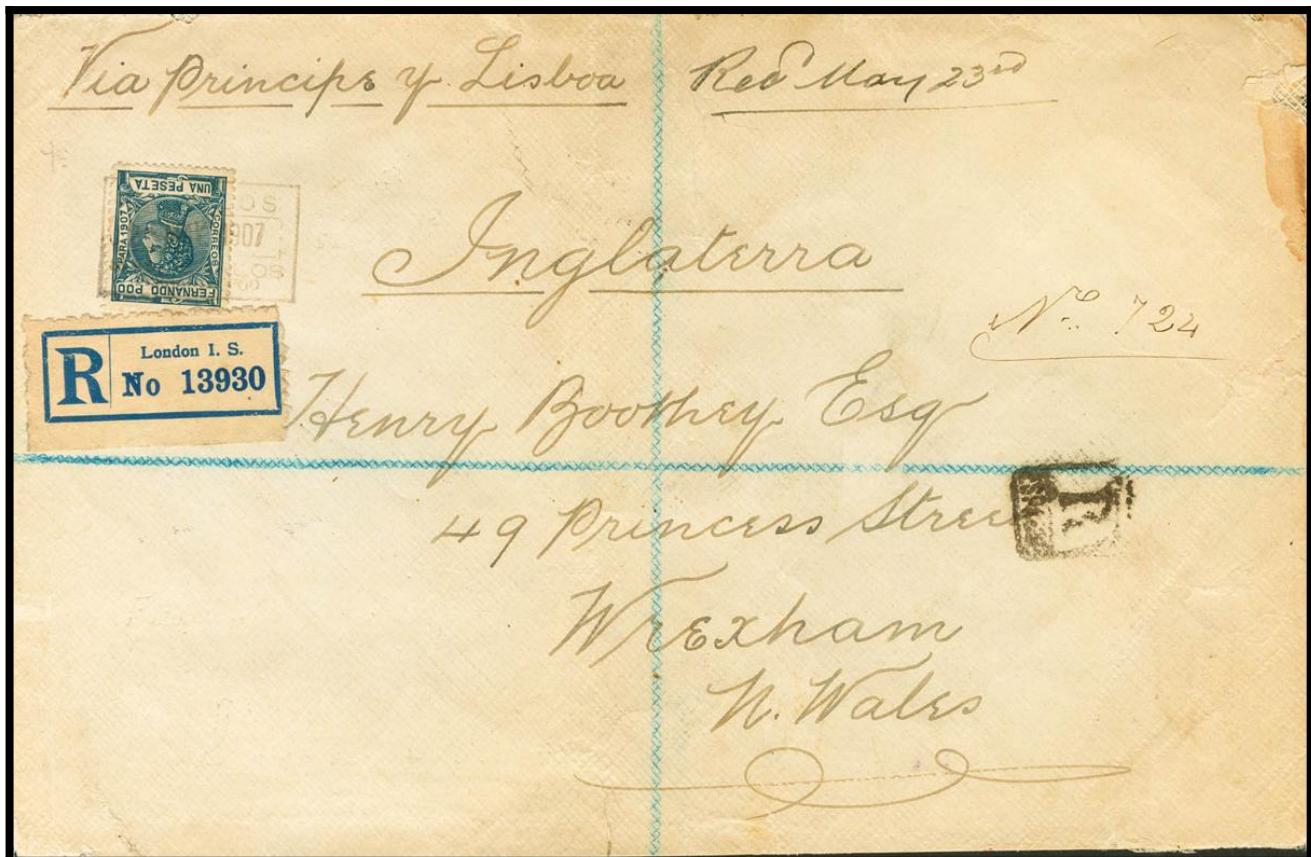 Via Principe y Lisboa
Recd May 23rd
UNA PESETA
PARA 1907
CORREOS
FERNANDO POO
OS
907
LOS
Inglaterra
R
London I. S.
No 13930
No. 724
Henry Boothey Esq
49 Princess Stree
Wrexham
N. Wales